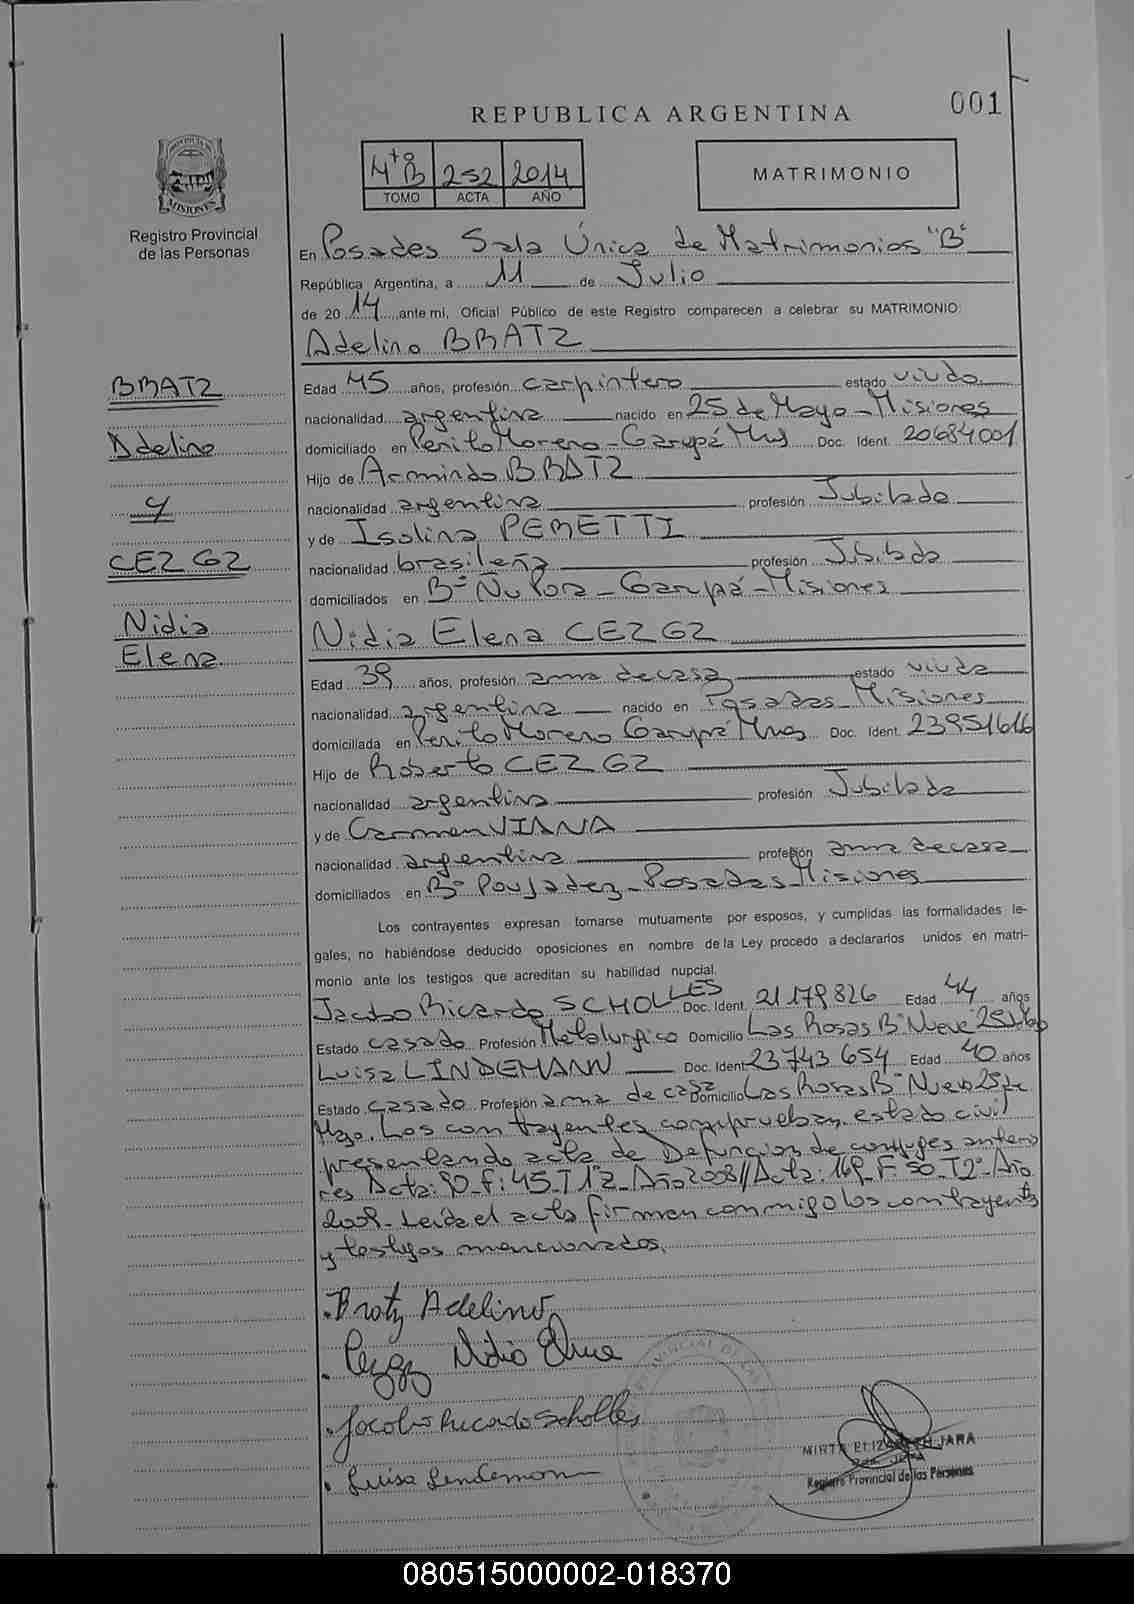 001
REPUBLICA ARGENTINA
PROVINCIA DE MISIONES
Registro Provincial
de las Personas
4to B 252 2014
TOMO ACTA AÑO
MATRIMONIO
En Posadas Sala Única de Matrimonios "B"
República Argentina, a 11 de Julio
de 2014 ante mí, Oficial Público de este Registro comparecen a celebrar su MATRIMONIO:
Adelino BRATZ
BRATZ
Adelino
y
CEZGZ
Nidia
Elena
Edad 45 años, profesión carpintero estado viudo
nacionalidad argentina nacido en 25 de Mayo - Misiones
domiciliado en Perito Moreno - Garupá Mnes Doc. Ident. 20684001
Hijo de Armindo BRATZ
nacionalidad argentina profesión Jubilado
y de Isolina PERETTI
nacionalidad brasileña profesión Jubilada
domiciliados en Bº Ñu Pora - Garupá - Misiones
Nidia Elena CEZGZ
Edad 39 años, profesión ama de casa estado viuda
nacionalidad argentina nacido en Posadas Misiones
domiciliada en Perito Moreno Garupá Mnes Doc. Ident. 23951616
Hijo de Roberto CEZGZ
nacionalidad argentina profesión Jubilado
y de Carmen VIANA
nacionalidad argentina profesión ama de casa
domiciliados en Bº Poujadez - Posadas Misiones
Los contrayentes expresan tomarse mutuamente por esposos, y cumplidas las formalidades le-
gales, no habiéndose deducido oposiciones en nombre de la Ley procedo a declararlos unidos en matri-
monio ante los testigos que acreditan su habilidad nupcial.
Jacobo Ricardo SCHOLLES Doc. Ident. 21179826 Edad 44 años
Estado casado Profesión Metalurgico Domicilio Las Rosas Bº Nueve 25 Mayo
Luisa LINDEMANN Doc. Ident. 23743654 Edad 40 años
Estado casado Profesión ama de casa Domicilio Las Rosas Bº Nueve 25 de
Mayo. Los contrayentes comprueban estado civil
presentando acta de Defuncion de conyuges anterio
res Acta: 90 F: 45 T 1º Año 2008// Acta: 169 F 50 T 2º Año
2009 - Leida el acta firman conmigo los contrayentes
y testigos mencionados.
Bratz Adelino
Cezgz Nidia Elena
Jacobo Ricardo Scholles
Luisa Lindemann
MIRTA ELIZABETH JARA
Registro Provincial de las Personas
080515000002-018370